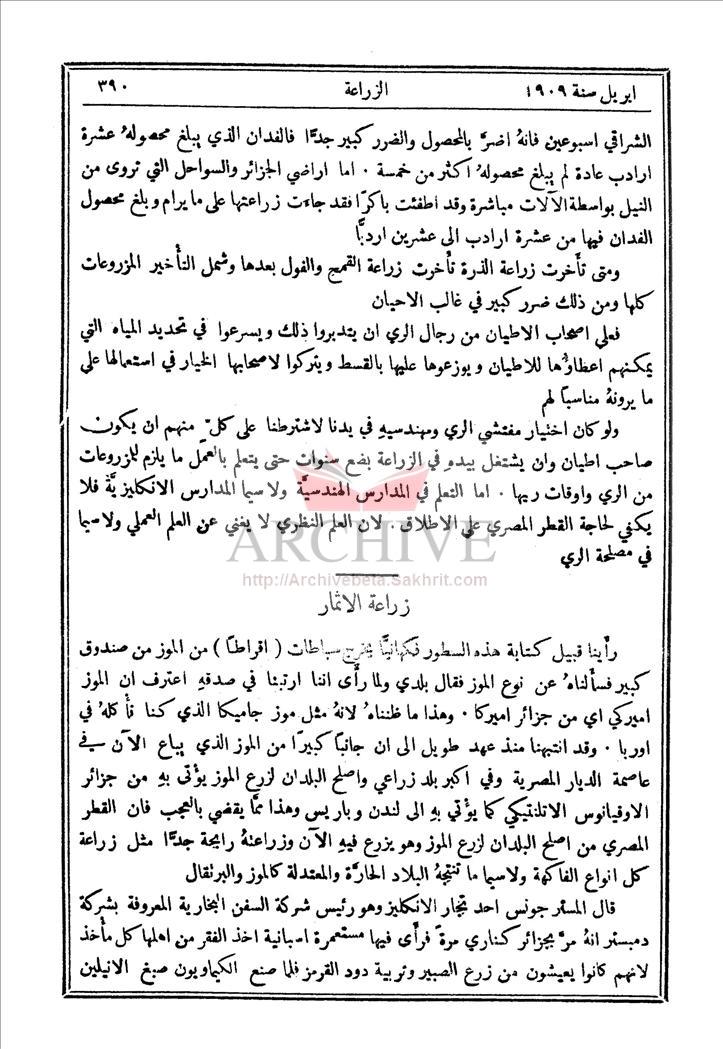 ابريل سنة ١٩٠٩ الزراعة ٣٩٠
الشراقي اسبوعين فانهُ اضرَّ بالمحصول والضرر كبير جدًّا فالفدان الذي يبلغ محصولهُ عشرة
ارادب عادة لم يبلغ محصولهُ اكثر من خمسة . اما اراضي الجزائر والسواحل التي تروى من
النيل بواسطة الآلات مباشرة وقد اطفئت باكرًا فقد جاءت زراعتها على ما يرام وبلغ محصول
الفدان فيها من عشرة ارادب الى عشرين اردبًّا
ومتى تأَخرت زراعة الذرة تأَخرت زراعة القمح والفول بعدها وشمل التأخير المزروعات
كلها ومن ذلك ضرر كبير في غالب الاحيان
فعلى اصحاب الاطيان من رجال الري ان يتدبروا ذلك ويسرعوا في تحديد المياه التي
يمكنهم اعطاؤُها للاطيان ويوزعوها عليها بالقسط ويتركوا لاصحابها الخيار في استعمالها على
ما يرونهُ مناسبًا لهم
ولو كان اختيار مفتشي الري ومهندسيهِ في يدنا لاشترطنا على كلّ منهم ان يكون
صاحب اطيان وان يشتغل بيده في الزراعة بضع سنوات حتى يتعلم بالعمل ما يلزم للمزروعات
من الري واوقات ريها . اما التعلم في المدارس الهندسيَّة ولا سيما المدارس الانكليزيَّة فلا
يكفي لحاجة القطر المصري على الاطلاق . لان العلم النظري لا يغني عن العلم العملي ولا سيما
في مصلحة الري
ARCHIVE
http://Archivebeta.Sakhrit.com
زراعة الاثمار
رأَينا قبيل كتابة هذه السطور فكهانيًّا يخرج سباطات ( اقراطًا ) من الموز من صندوق
كبير فسأَلناهُ عن نوع الموز فقال بلدي ولما رأَى اننا ارتبنا في صدقهِ اعترف ان الموز
اميركي اي من جزائر اميركا . وهذا ما ظنناهُ لانهُ مثل موز جاميكا الذي كنا نأْكلهُ في
اوربا . وقد انتبهنا منذ عهد طويل الى ان جانبًا كبيرًا من الموز الذي يباع الآن في
عاصمة الديار المصرية وفي اكبر بلد زراعي واصلح البلدان لزرع الموز يؤْتى بهِ من جزائر
الاوقيانوس الاتلنتيكي كما يؤْتي بهِ الى لندن وباريس وهذا ممَّا يقضي بالعجب فان القطر
المصري من اصلح البلدان لزرع الموز وهو يزرع فيهِ الآن وزراعتهُ رايجة جدًّا مثل زراعة
كل انواع الفاكهة ولا سيما ما تنتجهُ البلاد الحارَّة والمعتدلة كالموز والبرتقال
قال المستر جونس احد تجار الانكليز وهو رئيس شركة السفن البخارية المعروفة بشركة
دمبستر انهُ مرَّ بجزائر كناري مرةً فرأَى فيها مستعمرة اسبانية اخذ الفقر من اهلها كل مأْخذ
لانهم كانوا يعيشون من زرع الصبير وتربية دود القرمز فلما صنع الكيماويون صبغ الانيلين